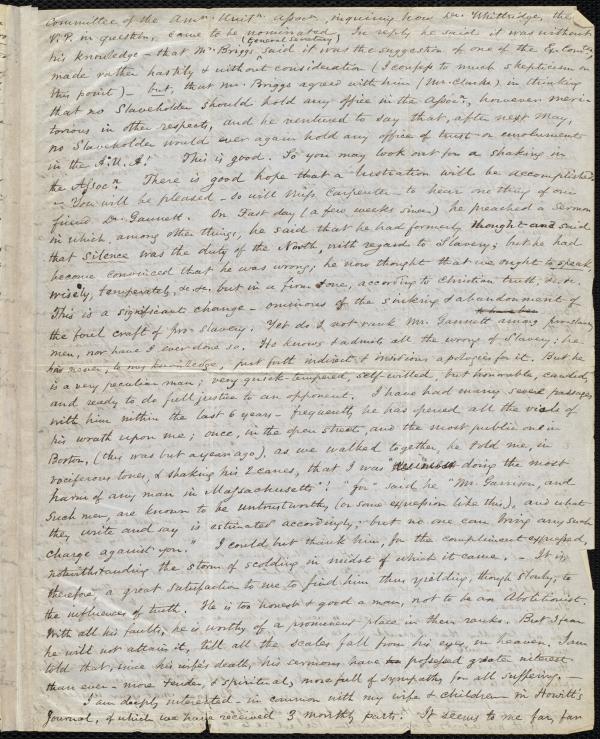 Committee of the Amn. Unitn. Assocn., inquiring how Dr. Whittridge, the
V. P. in question, came to be nominated. In reply he said it was without
his knowledge - that Mr. Briggs (General Secretary) said it was the suggestion of one of the Ex. Comee,
made rather hastily & without consideration (I confess to much skepticism on
this point) - but, that Mr. Briggs agreed with him (Mr. Clarke) in thinking
that no Slaveholder should hold any office in the Assocn., however meri-
torious in other respects, and he ventured to say that, after next May,
no Slaveholder would ever again hold any office of trust or emolument
in the A. U. A! This is good. So you may look out for a shaking in
the Assocn. There is good hope that a lustration will be accomplished.
- You will be pleased - so will Miss Carpenter - to hear one thing of our
friend Dr. Gannett. On Fast day (a few weeks since) he preached a Sermon
in which, among other things, he said that he had formerly thought and said
that Silence was the duty of the North, with regard to Slavery; but he had
become convinced that he was wrong; he now thought that we ought to speak,
wisely, temperately, &c. &c. but in a firm tone, according to Christian truth, &c. &c.
This is a significant change - ominous of the sinking & abandonment of
the foul craft of pro-Slavery. Yet do I not rank Mr. Gannett among pro-slavery
men, nor have I ever done so. He knows & admits all the wrong of Slavery; he
has never, to my knowledge, put forth indirect & insidious apologies for it. But he
is a very peculiar man; very quick-tempered, self-willed, but honorable, candid,
and ready to do full justice to an opponent. I have had many severe passages
with him within the last 6 years - frequently he has opened all the vials of
his wrath upon me; once, in the open street, and the most public one in
Boston, (this was but a year ago), as we walked together, he told me, in
vociferous tones, & shaking his 2 canes, that I was doing the most
harm of any man in Massachusetts! "for" said he "Mr. Garrison, and
Such men, are known to be untrustworthy (or some expression like this), and what
they write and say is estimated accordingly; but no one can bring any such
charge against you." I could but thank him, for the compliment expressed,
notwithstanding the storm of scolding in midst of which it came. - It is,
therefore, a great satisfaction to me to find him thus yielding, though slowly, to
the influences of truth. He is too honest & good a man, not to be an Abolitionist.
With all his faults, he is worthy of a prominent place in their ranks. But I fear
he will not attain it, till all the scales fall from his eyes, in heaven. I am
told that, since his wife's death, his sermons have possessed greater interest
than ever - more tender, & spiritual, more full of sympathy for all suffering. -
I am deeply interested - in common with my wife & children - in Howitt's
Journal, of which we have received 3 monthly parts. It seems to me far, far